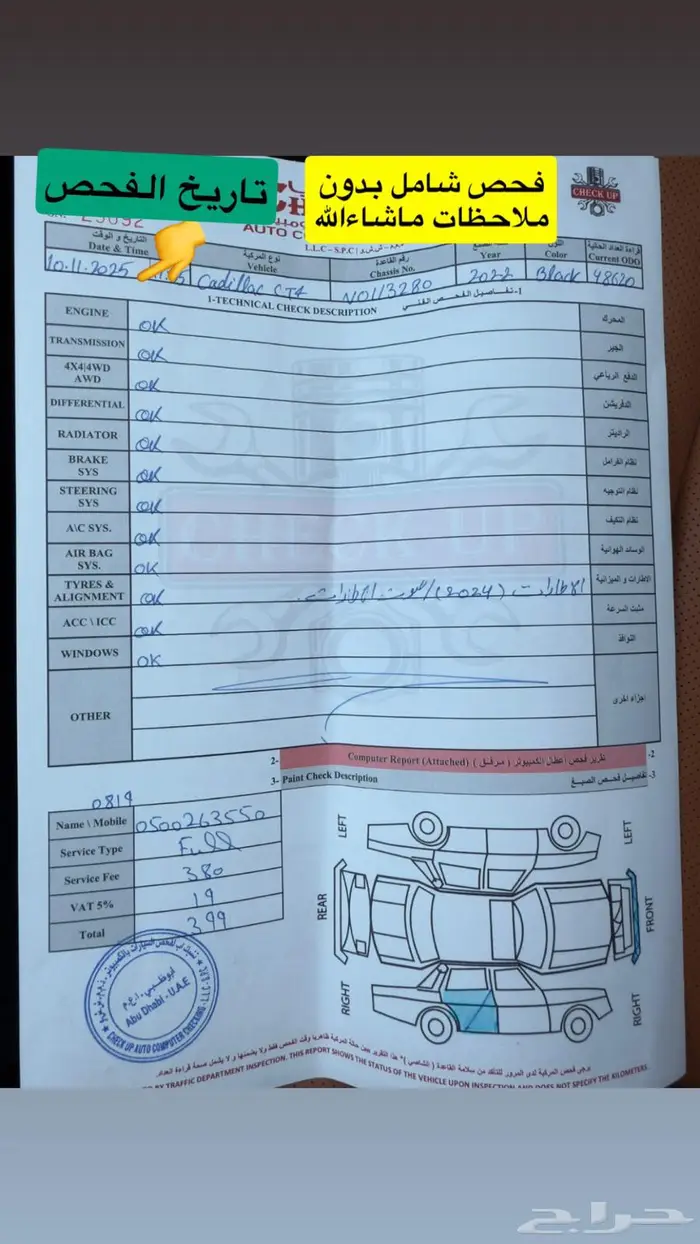 فحص شامل بدون
ملاحظات ماشاءالله
تاريخ الفحص
CHECK UP
AUTO C
L.L.C - S.P.C
التاريخ و الوقت
Date & Time
نوع المركبة
Vehicle
رقم القاعدة
Chassis No.
Year
اللون
Color
قراءة العداد الحالية
Current ODO
10.11.2025
Cadillac CT4
N0113280
2022
Black
48620
1-TECHNICAL CHECK DESCRIPTION
1- تفاصيل الفحص الفني
ENGINE OK المحرك
TRANSMISSION OK الجير
4X4|4WD AWD OK الدفع الرباعي
DIFFERENTIAL OK الدفريشن
RADIATOR OK الراديتر
BRAKE SYS OK نظام الفرامل
STEERING SYS OK نظام التوجيه
A\C SYS. OK نظام التكيف
AIR BAG SYS. OK الوسائد الهوائية
TYRES & ALIGNMENT OK الاطارات (2024) / صوت اطارات. الاطارات و الميزانية
ACC \ ICC OK مثبت السرعة
WINDOWS OK النوافذ
OTHER اجزاء اخرى
2- Computer Report (Attached) تقرير فحص اعطال الكمبيوتر ( مرفق ) -2
3- Paint Check Description تفاصيل فحص الصبغ -3
0819
Name \ Mobile 0500263550
Service Type Full
Service Fee 380
VAT 5% 19
Total 399
LEFT
LEFT
REAR
FRONT
RIGHT
RIGHT
أبوظبي - ا.ع.م
Abu Dhabi - U.A.E
CHECK UP AUTO COMPUTER CHECKING - L.L.C
يرجى فحص المركبة لدى المرور للتأكد من سلامة القاعدة ( الشاصي )
BY TRAFFIC DEPARTMENT INSPECTION. THIS REPORT SHOWS THE STATUS OF THE VEHICLE UPON INSPECTION AND DOES NOT SPECIFY THE KILOMETERS.
حراج